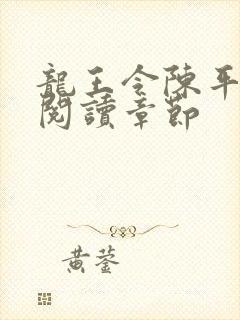 龍王令陳平
閱讀章節
黃蓥